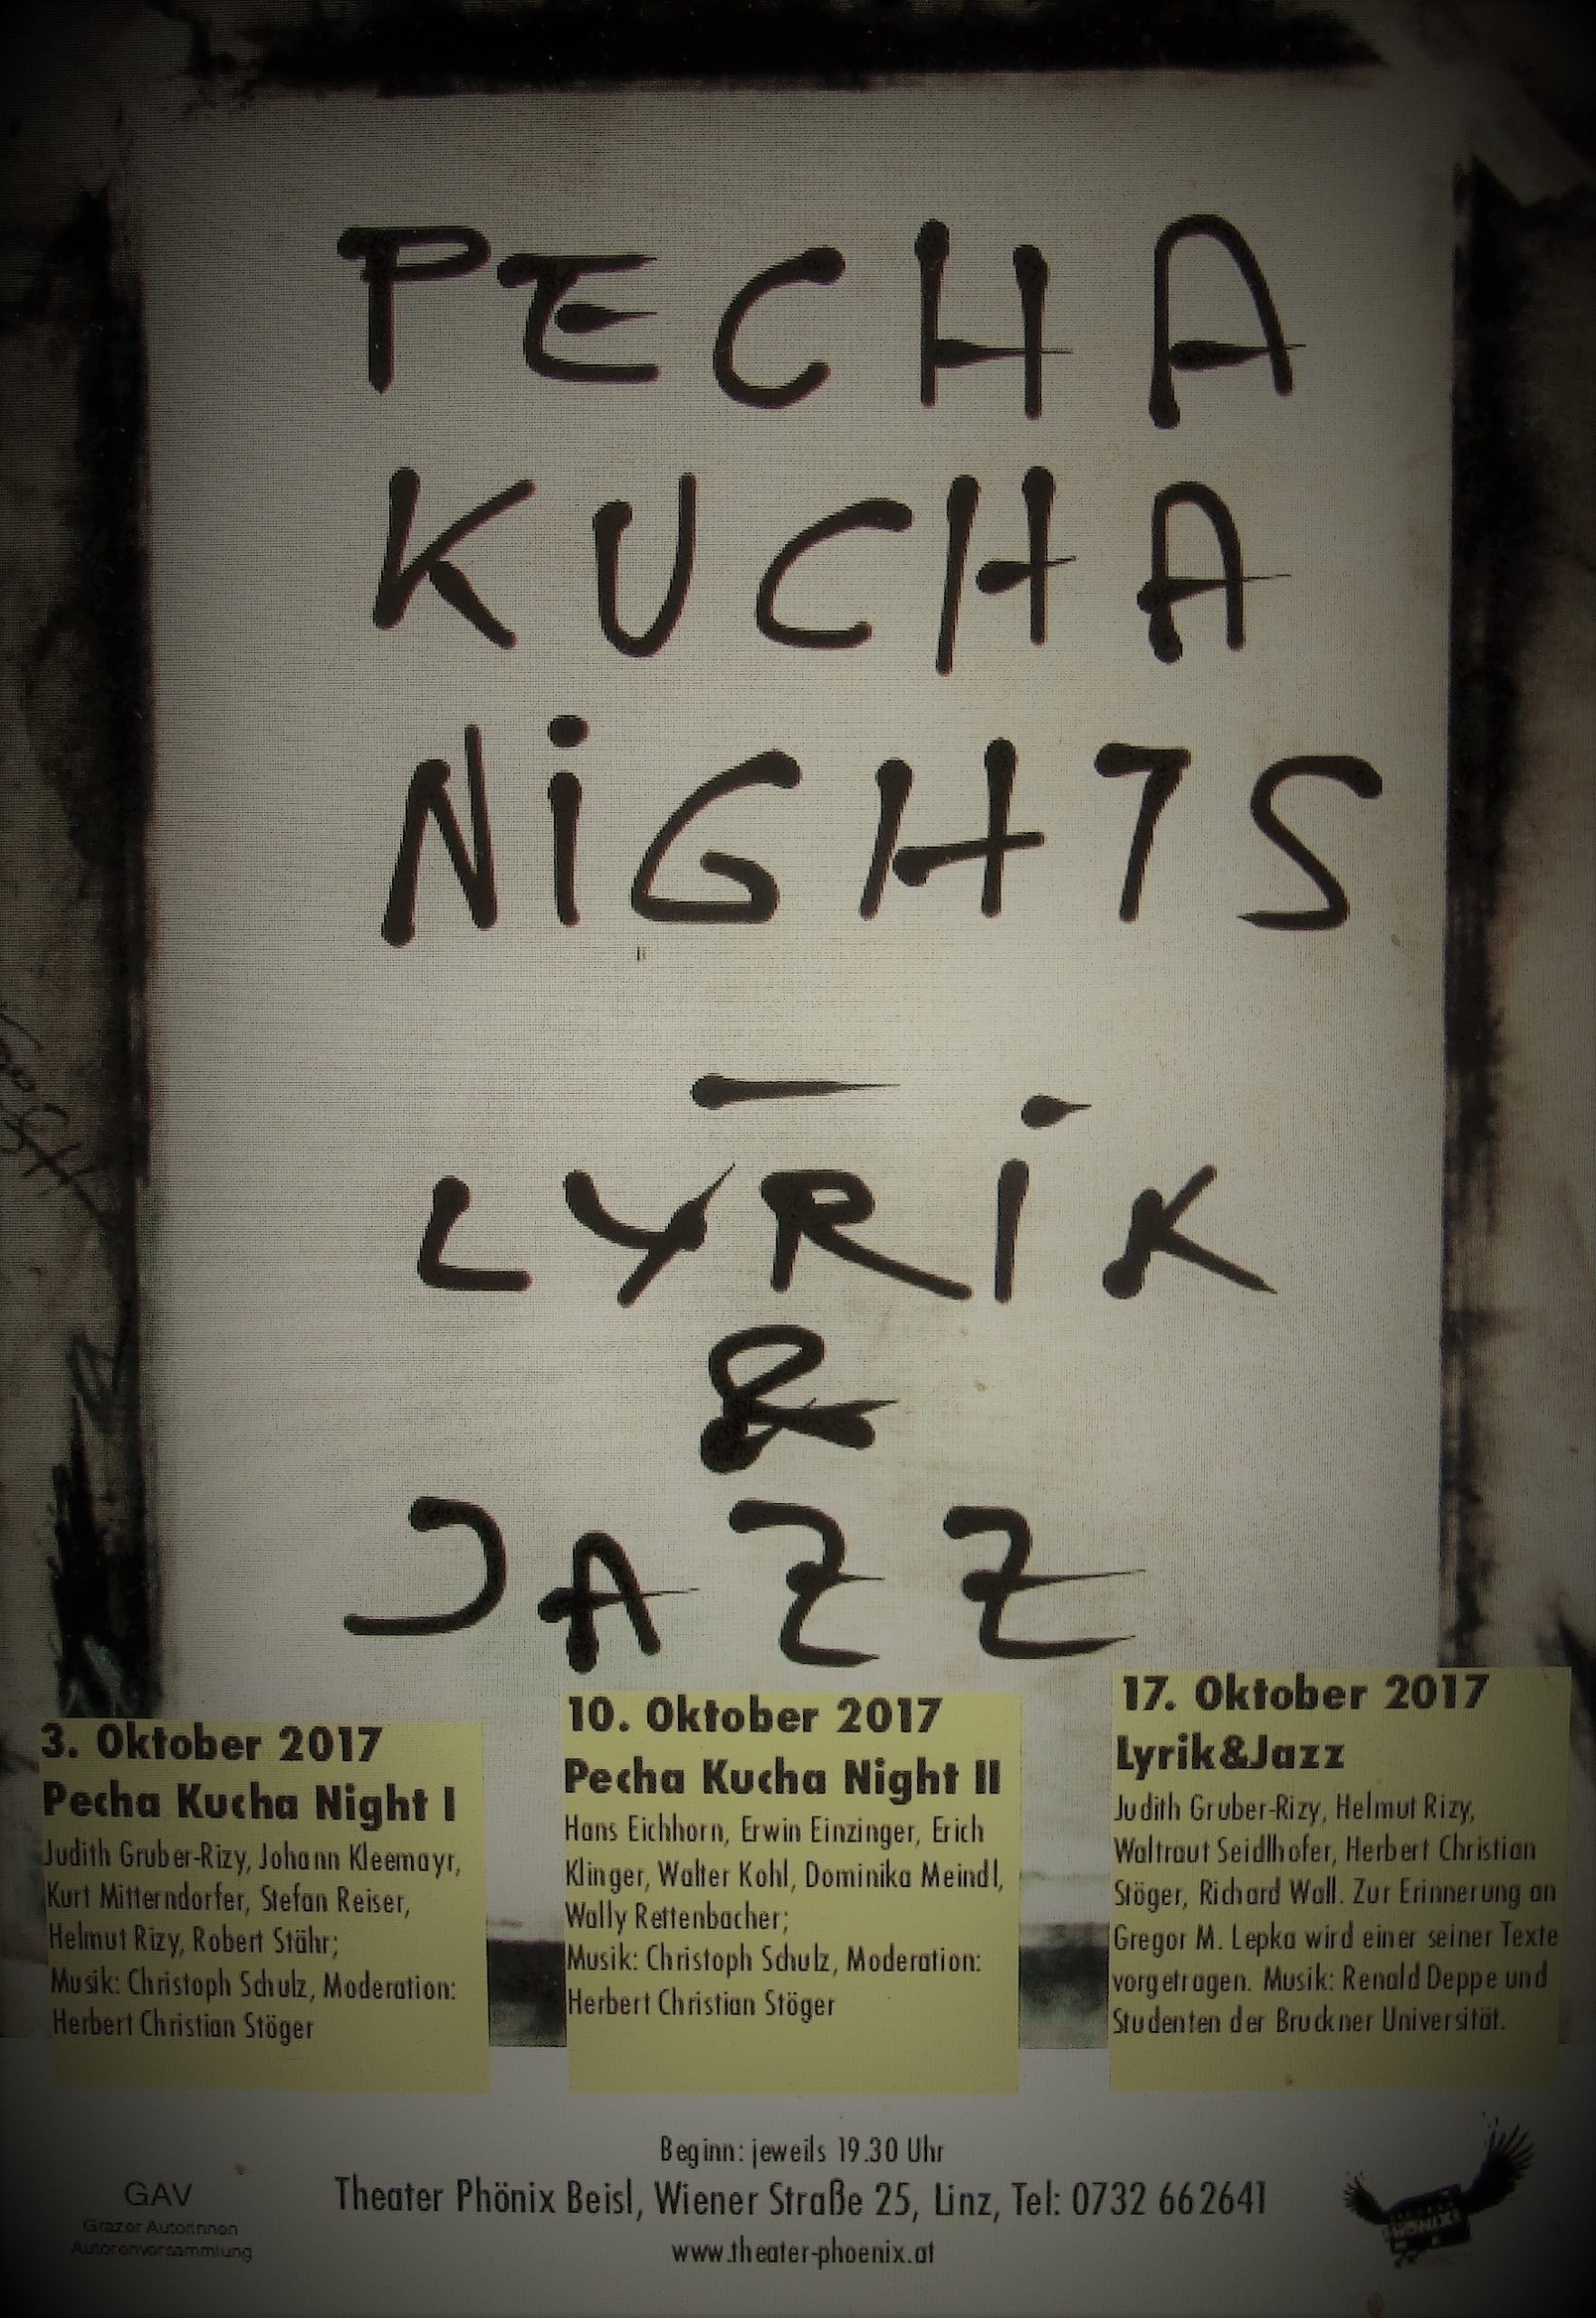 PECHA
KUCHA
NiGHTS
–
LYRiK
&
JAZZ
3. Oktober 2017
Pecha Kucha Night I
Judith Gruber-Rizy, Johann Kleemayr,
Kurt Mitterndorfer, Stefan Reiser,
Helmut Rizy, Robert Stähr;
Musik: Christoph Schulz, Moderation:
Herbert Christian Stöger
10. Oktober 2017
Pecha Kucha Night II
Hans Eichhorn, Erwin Einzinger, Erich
Klinger, Walter Kohl, Dominika Meindl,
Wally Rettenbacher;
Musik: Christoph Schulz, Moderation:
Herbert Christian Stöger
17. Oktober 2017
Lyrik&Jazz
Judith Gruber-Rizy, Helmut Rizy,
Waltraut Seidlhofer, Herbert Christian
Stöger, Richard Wall. Zur Erinnerung an
Gregor M. Lepka wird einer seiner Texte
vorgetragen. Musik: Renald Deppe und
Studenten der Bruckner Universität.
Beginn: jeweils 19.30 Uhr
Theater Phönix Beisl, Wiener Straße 25, Linz, Tel: 0732 662641
www.theater-phoenix.at
GAV
Grazer Autorinnen
Autorenversammlung
PHÖNIX